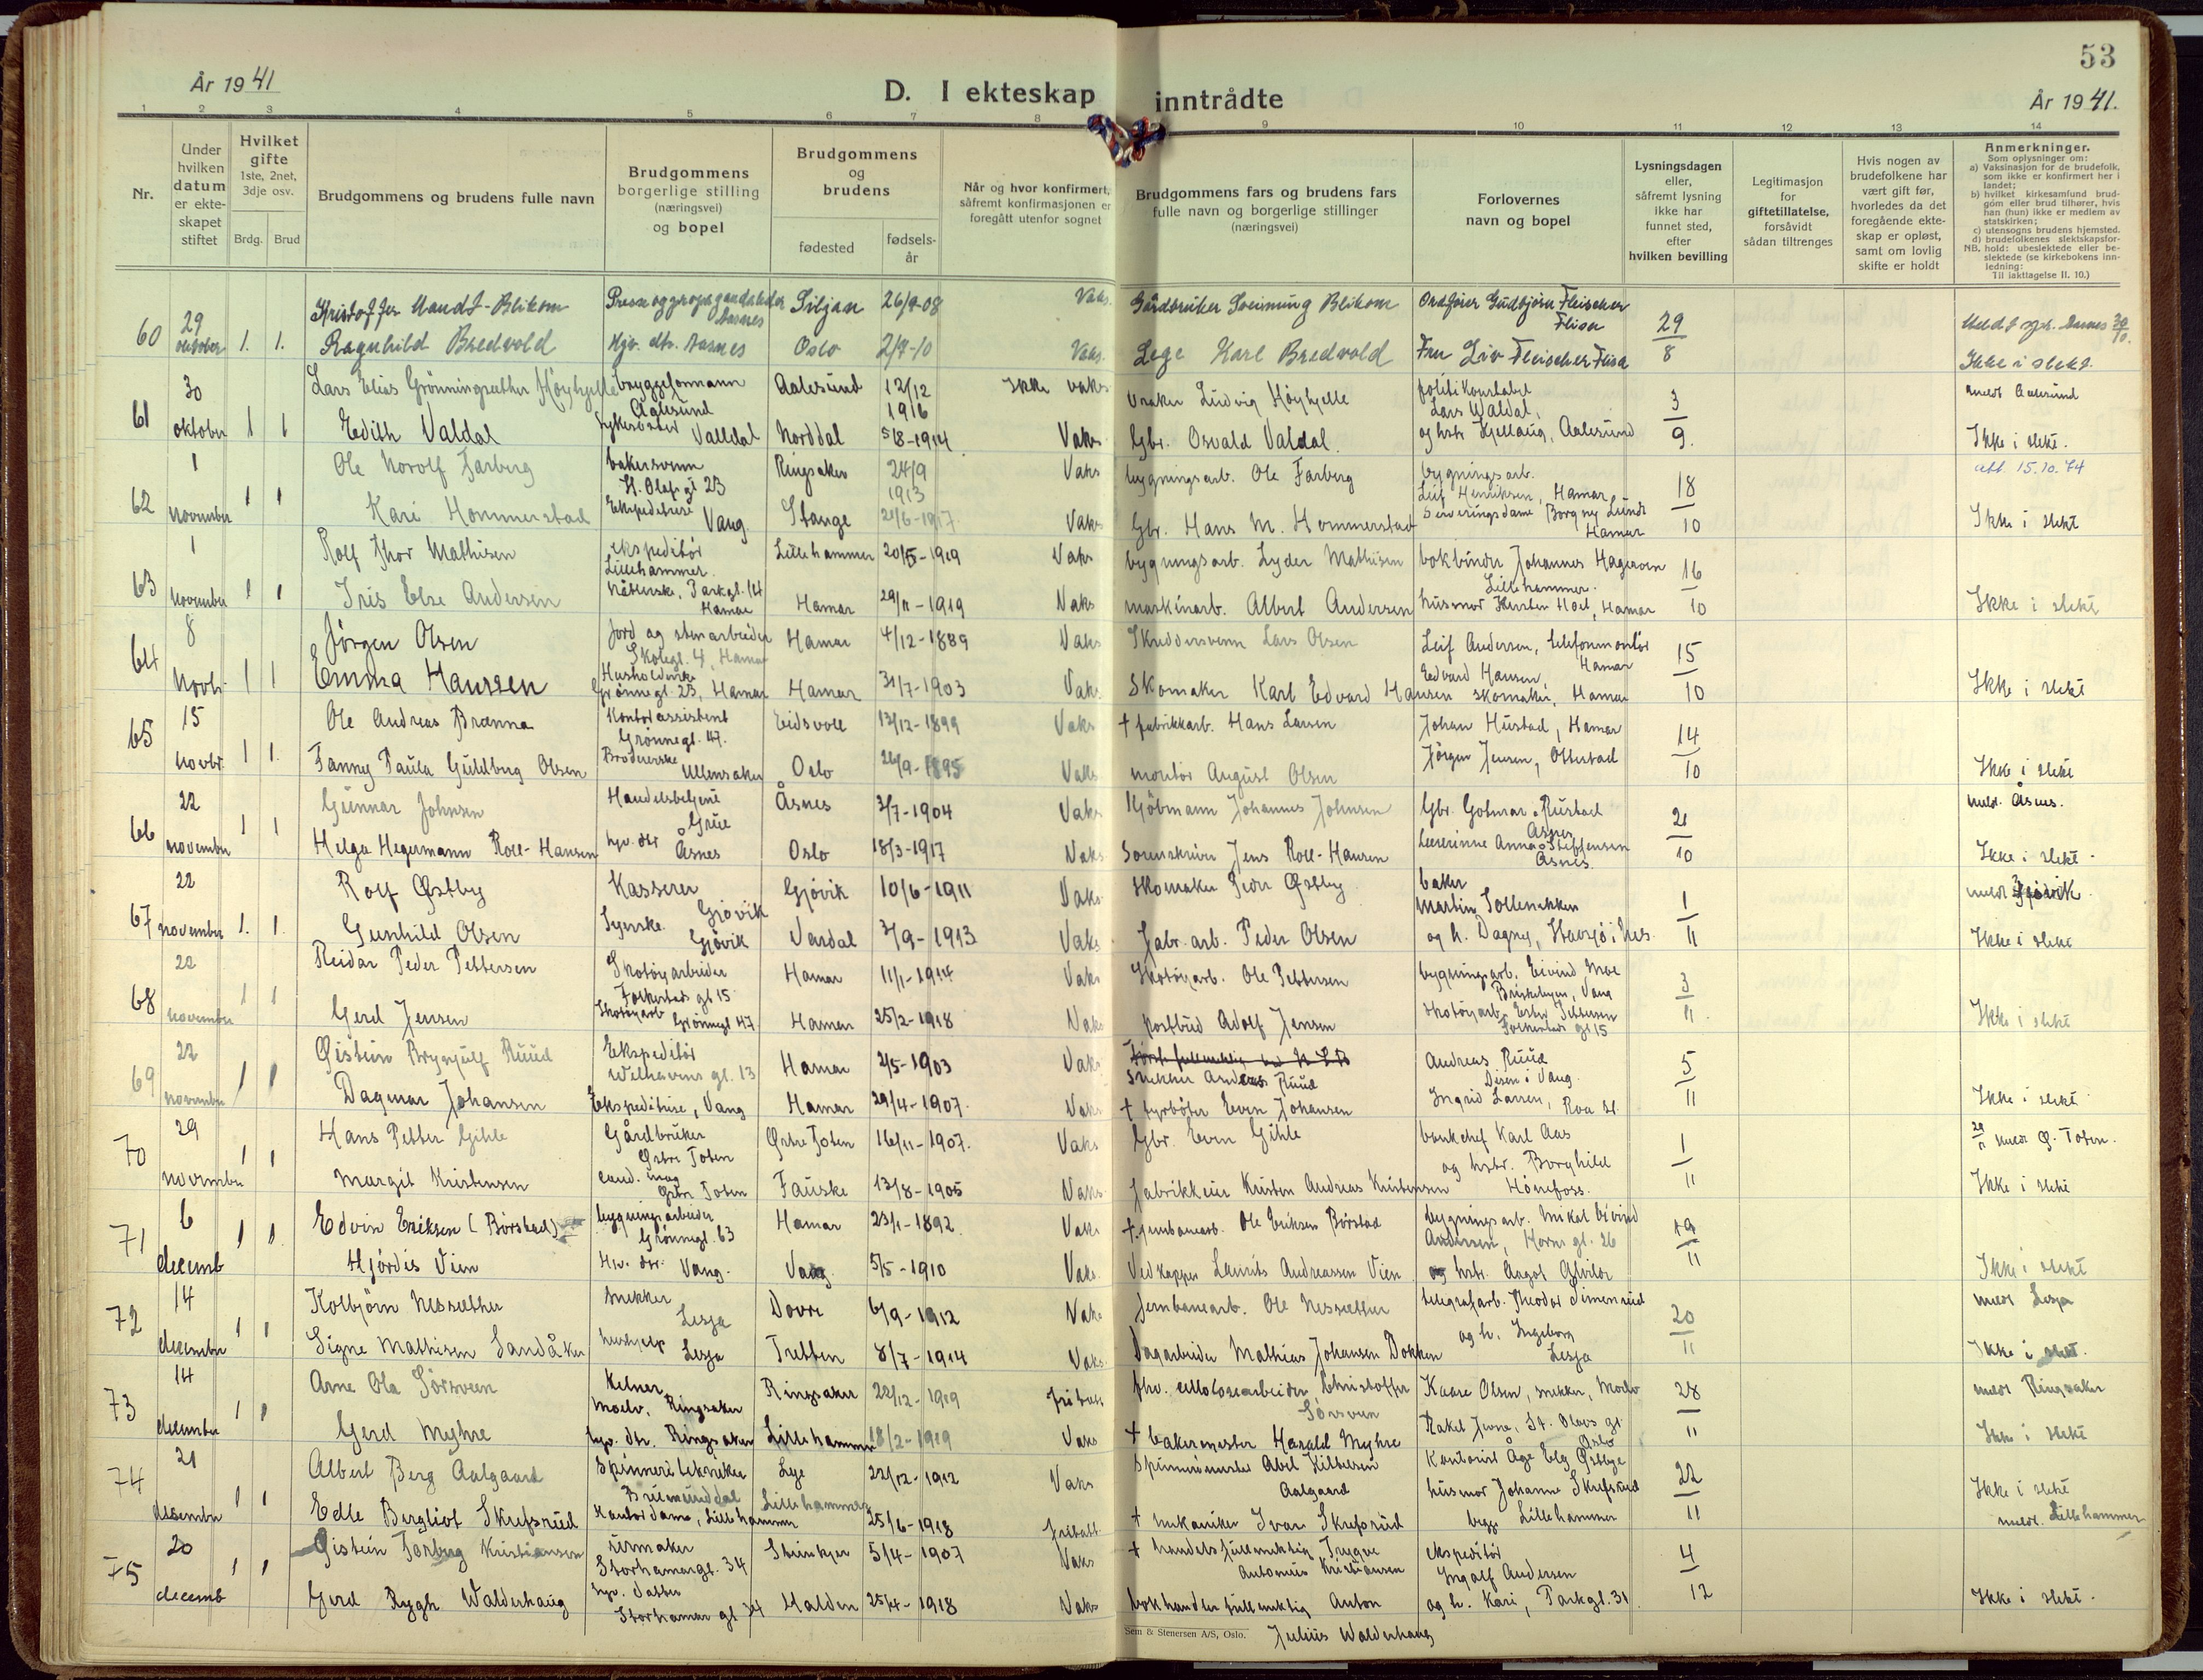 53
År 1941
D. I ekteskap inntrådte
År 1941.
1 2 3 4 5 6 7 8 9 10 11 12 13 14
Nr.
Under hvilken datum er ekteskapet stiftet
Hvilket gifte 1ste, 2net, 3dje osv.
Brdg. Brud
Brudgommens og brudens fulle navn
Brudgommens borgerlige stilling (næringsvei) og bopel
Brudgommens og brudens
fødested
fødselsår
Når og hvor konfirmert, såfremt konfirmasjonen er foregått utenfor sognet
Brudgommens fars og brudens fars fulle navn og borgerlige stillinger (næringsvei)
Forlovernes navn og bopel
Lysningsdagen eller, såfremt lysning ikke har funnet sted, efter hvilken bevilling
Legitimasjon for giftetillatelse, forsåvidt sådan tiltrenges
Hvis nogen av brudefolkene har vært gift før, hvorledes da det foregående ekteskap er opløst, samt om lovlig skifte er holdt
Anmerkninger.
Som oplysninger om:
a) Vaksinasjon for de brudefolk, som ikke er konfirmert her i landet;
b) hvilket kirkesamfund brudgom eller brud tilhører, hvis han (hun) ikke er medlem av statskirken;
c) utensogns brudens hjemsted.
d) brudefolkenes slektskapsforhold: ubeslektede eller beslektede (se kirkebokens innledning:
NB.
Til iakttagelse II. 10.)
60 29 oktober 1. 1.
Kristoffer Mandt-Blikom Siljan 26/9-08 Vaks. Gårdbruker Sveinung Blikom Ordfører Gudbjørn Fleischer Flisa 29/8
Ragnhild Bredvold Hjv. dtr. Aasnes Oslo 2/7-10 Vaks. Lege Karl Bredvold Fru Liv Fleischer Flisa Ikke i slekt.
61 30 oktober 1 1
Lars Elias Grønningsæther Høyhjelle bryggeformann Aalesund Aalesund 12/12 1916 Ikke vaks Ludvig Høyhjelle politikonstabel Lars Valdal, 3/9. meldt Aalesund
Edith Valdal Sykesøster Valldal Norddal 5/8-1914 Vaks Gbr. Osvald Valdal og hstr Kjellaug, Aalesund Ikke i slekt.
62 1 november 1 1
Ole Norolf Farberg bakersvenn St. Olafs gt 23 Ringsaker 24/9 1913 Vaks bygningsarb. Ole Farberg bygningsarb. Leif Henriksen, Hamar 18/10 att. 15.10.74
Kari Hommerstad Ekspeditrise Vang Stange 21/6-1917 Vaks Gbr. Hans M. Hommerstad Serveringsdame Borgny Lunde Hamar Ikke i slekt
63 1 november 1 1
Rolf Thor Mathisen ekspeditør Lillehammer Lillehammer 20/5-1919 Vaks bygningsarb. Lyder Mathisen bokbinder Johannes Hageroen Lillehammer 16/10
Iris Else Andersen Nåterske, Parkgt. 14 Hamar Hamar 29/11-1919 Vaks maskinarb. Albert Andersen husmor Kirsten Hoel, Hamar Ikke i slekt
64 8 novbr 1 1
Jörgen Olsen Jord og stenarbeider Skolegt. 4, Hamar Hamar 4/12-1889 Vaks Skreddersvenn Lars Olsen Leif Andersen, telefonmontør Hamar 15/10
Emma Hanssen Husholderske Grønnegt. 23, Hamar Hamar 31/7-1903 Vaks Skomaker Karl Edvard Hansen Edvard Hansen, skomaker, Hamar Ikke i slekt
65 15 novbr. 1 1.
Ole Andreas Brænna Kontorassistent Grønnegt. 47. Eidsvoll 13/12-1899 Vaks + fabrikkarb. Hans Larsen Johan Hustad, Hamar 14/10
Fanny Paula Guldberg Olsen Broderske Ullensaker Oslo 26/9-1895 Vaks montør August Olsen Jörgen Jensen, Ottestad Ikke i slekt
66 22 november 1 1
Gunnar Johnsen Handelsbetjent Grue Åsnes 3/7-1904 Vaks Kjöbmann Johannes Johnsen Gbr. Gotmar Rustad Åsnes 21/10 meld. Åsnes.
Helga Hegermann Roll-Hansen hjv. dtr Åsnes Oslo 18/3-1917 Vaks Sorenskriver Jens Roll-Hansen Lærerinne Anna Steffensen Åsnes Ikke i slekt.
67 22 november 1. 1.
Rolf Østby Kasserer Gjövik Gjövik 10/6-1911 Vaks skomaker Peder Østby baker Martin Sollenakken 1/11 meldt Gjövik.
Gunhild Olsen Syerske Gjövik Vardal 3/9-1913 Vaks fabr. arb. Peder Olsen og h. Dagny, Stavsjö i Nes. Ikke i slekt
68 22 november 1 1
Reidar Peder Pettersen Skotøyarbeider Folkestads gt 15 Hamar 11/1-1914 Vaks Skotøyarb. Ole Pettersen bygningsarb. Eivind Moe Briskebyen, Vang 3/11.
Gerd Jensen Skotøyarb Grønnegt 47 Hamar 25/2-1918 Vaks postbud Adolf Jensen skotøyarb. Ester Pettersen Folkestads gt 15 Ikke i slekt
69 22 november 1 1
Øistein Brynjulf Ruud Ekspeditör Welhavens gt. 13 Hamar 2/5-1903 Vaks Snekker Andreas Ruud Andreas Ruud Disen i Vang 5/11
Dagmar Johansen Ekspeditrise, Vang Hamar 29/4-1907. Vaks + fyrböter Even Johansen Ingrid Larsen, Roa st. Ikke i slekt
70 29 november 1 1
Hans Petter Gihle Gårdbruker Østre Toten Østre Toten 16/11-1907. Vaks Gbr. Even Gihle bankchef Karl Aas 1/11 meldt Ø. Toten.
Margit Kristensen cand. mag Østre Toten Fauske 13/8-1905 Vaks. fabrikkeier Kristen Andreas Kristensen og hstr. Borghild Hönefoss. Ikke i slekt
71 6 decemb 1 1.
Edvin Eriksen (Börstad) bygningsarbeider Grønnegt. 63 Hamar 23/1-1892. Vaks +. jernbanearb. Ole Eriksen Börstad bygningsarb. Mikal Eivind Andersen, Horns gt. 26 19/11
Hjördis Vien Hv. dtr. Vang. Vang 5/5-1910 Vaks. Vedkapper Laurits Andreassen Vien og hstr. Aagot Ikke i slekt
72 14 december 1 1
Kolbjörn Nessæther snekker Lesja Dovre 6/9-1912 Vaks jernbanearb. Ole Nessæther telegrafarb. Theodor Simenrud 20/11 meldt Lesja
Signe Mathisen Sandåker hushjelp Lesja Tretten 8/7-1914 Vaks. Dagarbeider Mathias Johansen Dokken og h. Ingeborg Lesja Ikke i slekt.
73 14 december 1 1
Arne Ola Sörsveen Kelner Moelv, Ringsaker Ringsaker 22/12-1919 fhv. cellolosearbeider Christoffer Sörsveen Kaare Olsen, snekker, Moelv 28/11 meldt Ringsaker
Gerd Myhre hjv. dtr. Ringsaker Lillehammer 18/2-1919 Vaks + bakermester Harald Myhre Rakel Jevne, St. Olavs gt. Oslo Ikke i slekt
74 21 desember 1 1
Albert Berg Aalgaard Spinneritekniker Brumunddal Lye 22/12-1912 Vaks Spinnerimester Abel Kittelsen Aalgaard Kontorist Åge Elg Østbye 22/11 Ikke i slekt
Edle Bergliot Skrefsrud Kontordame, Lillehammer Lillehammer 25/6-1918 + mekaniker Ivar Skrefsrud husmor Johanne Skrefsrud begge Lillehammer meldt. Lillehammer
75 20 decemb 1 1
Øistein Torberg Kristiansen urmaker Storhamargt. 34 Steinkjer 5/4-1907 Vaks + handelsfullmektig Trygve Antonius Kristiansen ekspeditör Ingolf Andersen 4/12
Gerd Rygh Walderhaug hjv. datter Storhamar gt 34 Halden 25/4-1918 Vaks bokhandlerfullmektig Anton Julius Walderhaug og h. Kari, Parkgt. 31. Ikke i slekt.
Sem & Stenersen A/S, Oslo.